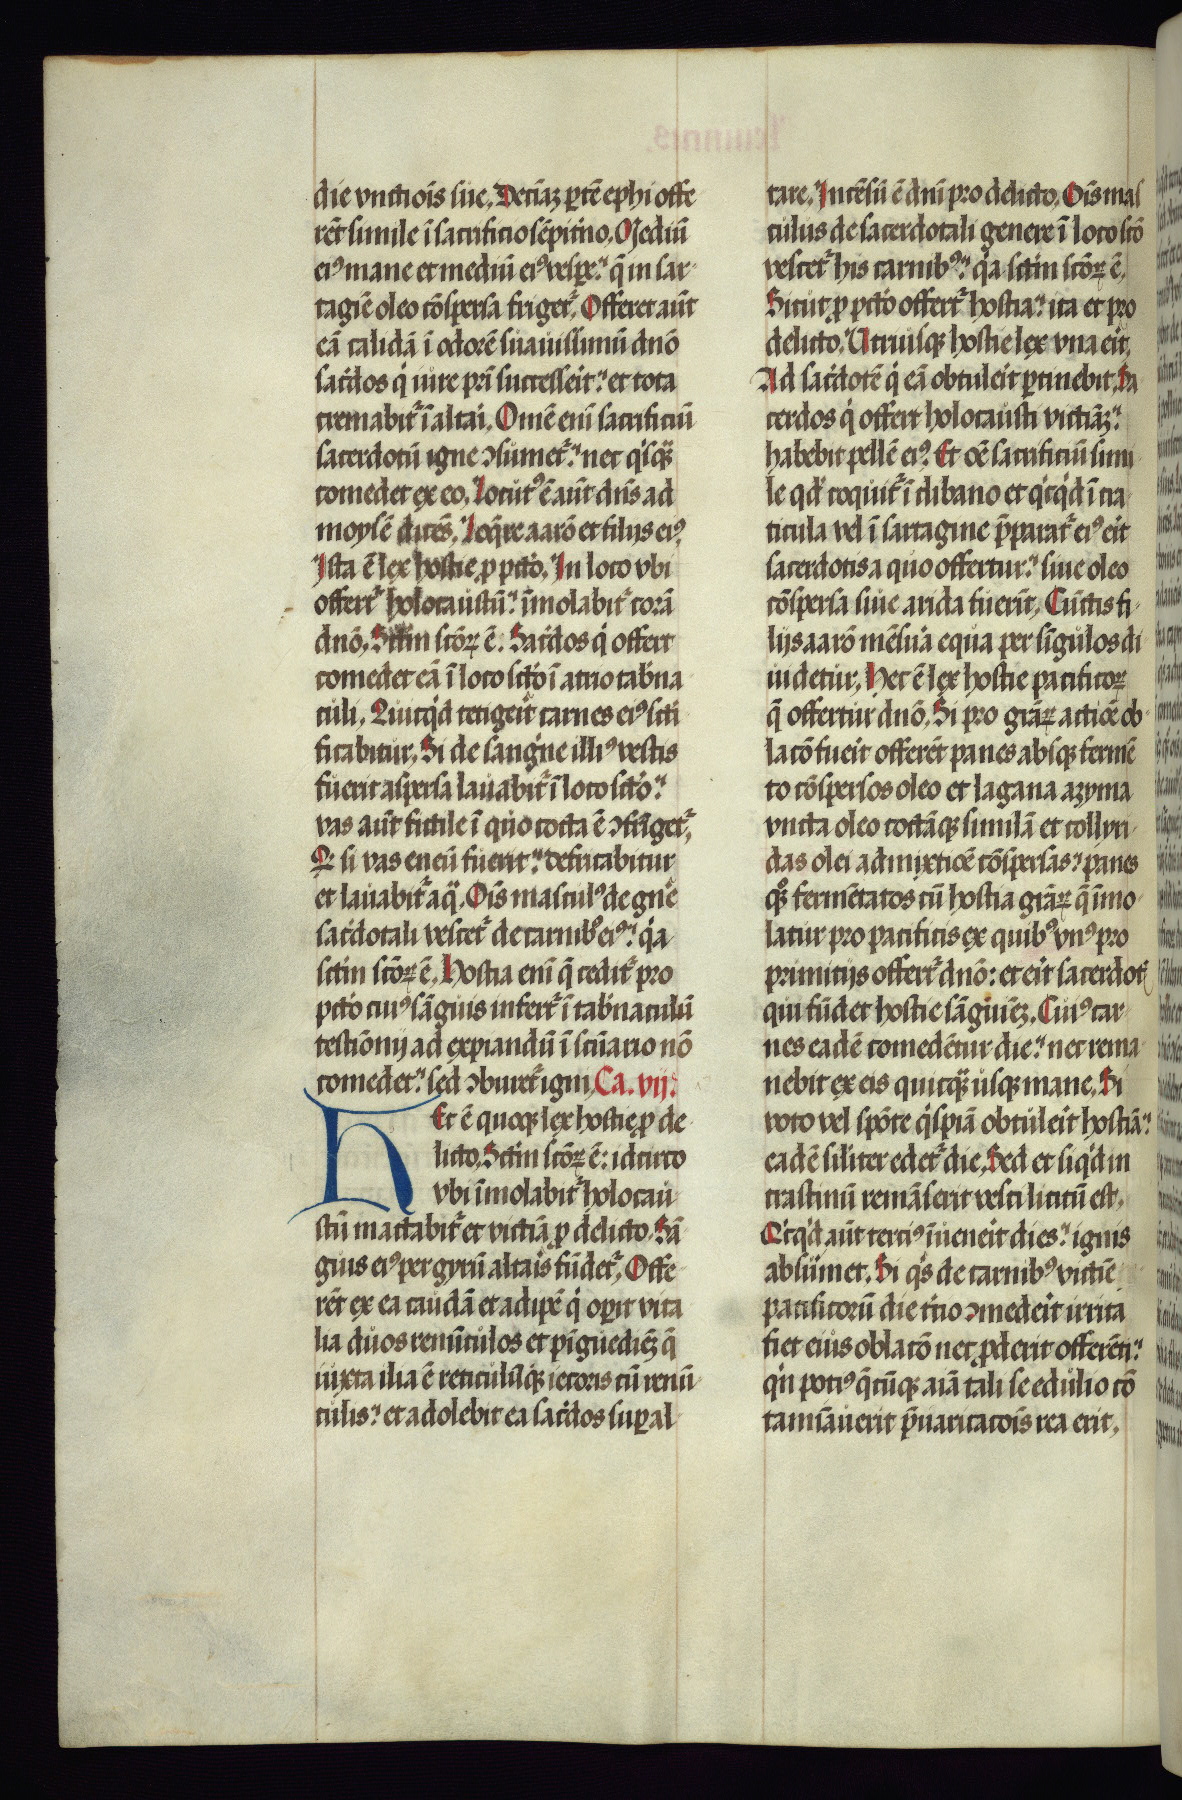 die vnctiois̄ sue. Decīaꝫ ꝑtē ephi offe
rēt simile ī sacrificio sēpit̄no. Mediū
eiꝰ mane et mediū eiꝰ vesꝑe: q̄ in sar
tagīe oleo cōspersa friget᷑. Offeret aūt
eā calidā ī odorē suauissimū dn̄o
sac̄dos qͥ iure pr̄i successeit: et tota
cremabit᷑ ī altaī. Om̄e enī sacrificiū
sacerdotū igne ↄsumet᷑: nec qͥsqᷓ
comedet ex eo. Locutꝰ ē aūt dn̄s ad
moysē dicēs. Loq̄re aarō et filijs eiꝰ
Ista ē lex hostie ꝓ pctō. In loco vbi
offert᷑ holocaustū: īmolabit᷑ corā
dn̄o. Sctm̄ sctōꝝ ē. Sac̄dos qͥ offert
comedet eā ī loco sctō ī atrio tab̄na
culi. Quicqͥd tetigeīt carnes eiꝰ scti
ficabitur. Si de sangīne illiꝰ vestis
fuerit aspersa lauabit᷑ ī loco sctō:
vas aūt fictile ī quo cocta ē ↄfrīget᷑.
Qꝛ si vas eneū fuerit: defricabitur
et lauabit᷑ aqᷓ. Oīs masculꝰ de gn̄e
sac̄dotali vescet᷑ de carnibꝰ eiꝰ: qͥa
sctm̄ sctōꝝ ē. Hostia enī q̄ cedit᷑ pro
pctō cuiꝰ sāguis infert᷑ ī tab̄naculū
testīonij ad expiandū ī scūario nō
comedet᷑: sed ↄburet᷑ igni. Ca. vij.
Hec ē quoqꝫ lex hostie ꝓ de
licto. Sctm̄ sctōꝝ ē: idcirco
vbi īmolabit᷑ holocau
stū mactabit᷑ et victīa ꝓ delicto. Sā
guis eiꝰ per gyrū altaīs fūdet᷑. Offe
rēt ex ea caudā et adipē qͥ opīt vita
lia duos renūculos et pīguedīeꝫ q̄
iuxta ilia ē reticulūqꝫ iecoris cū renū
culis: et adolebit ea sac̄dos suꝑ al
tare. Incēsū ē dn̄i pro delicto. Oīs mas
culus de sacerdotali genere ī loco sctō
vescet᷑ his carnibꝰ: qͥa sctm̄ sctōꝝ ē.
Sicut ꝓ pctō offert᷑ hostia: ita et pro
delicto. Utriusqꝫ hostie lex vna eīt.
Ad sac̄dotē qͥ eā obtuleīt ꝑtinebit. Sa
cerdos qͥ offert holocausti victīaꝫ:
habebit pellē eiꝰ. Et oē sacrificiū simi
le qd̄ coquit᷑ ī clibano et qͥcqͥd ī cra
ticula vel ī sartagine p̄parat᷑ eiꝰ eīt
sacerdotis a quo offertur: siue oleo
cōspersa siue arida fuerīt. Cūctis fi
lijs aarō mēsura equa per sīgulos di
uidetur. Hec ē lex hostie pacificoꝝ
q̄ offertur dn̄o. Si pro grāꝝ actiōe ob
lacō fueīt offerēt panes absqꝫ fermē
to cōspersos oleo et lagana azyma
vncta oleo coctāqꝫ similā et collyri
das olei admixtiōe cōspersas: panes
qꝫ fermētatos cū hostia grāꝝ q̄ īmo
latur pro pacificis ex quibꝰ vnꝰ pro
primicijs offert᷑ dn̄o: et eīt sacerdot᷑
qui fūdet hostie sāguīeꝫ. Cuiꝰ car
nes eadē comedētur die: nec rema
nebit ex eis quicqᷓ usqꝫ mane. Si
voto vel spōte qͥspiā obtuleīt hostiā:
eadē sīliter edet᷑ die. Sed et si qͥd in
crastinū remāserit vesci licitū est.
Qͥcqͥd aūt terciꝰ īueneīt dies: ignis
absūmet. Si qͥs de carnibꝰ victīe
pacificorū die t̄cio ↄmedeīt irrita
fiet eius oblacō nec ꝓderit offerēti:
qͥn pociꝰ q̄cūqꝫ aīa tali se edulio cō
tamīauerit p̄uaricatoīs rea erit.